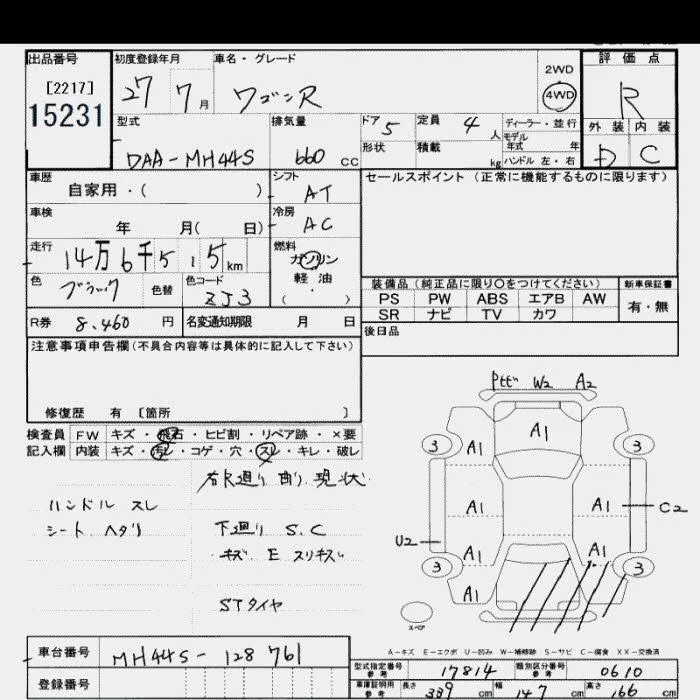 出品番号 初度登録年月 車名・グレード 評価点
[2217] 27 7月 ワゴンR 2WD 4WD R
15231
型式 排気量 ドア 5 定員 4人 ディーラー・並行 外装 内装
形状 積載 kg モデル年式 年
DAA-MH44S 660 CC ハンドル 左・右 D C
車歴 自家用・( ) シフト AT セールスポイント(正常に機能するものに限ります)
車検 年 月( 日) 冷房 AC
走行 14万6千515km 燃料 ガソリン
色 ブラック 色替 色コード ZJ3 軽油
( ・ )
装備品(純正品に限り○をつけてください) 新車保証書
PS PW ABS エアB AW 有・無
SR ナビ TV カワ
R券 8,460円 名変通知期限 月 日 後日品
注意事項申告欄(不具合内容等は具体的に記入して下さい)
修復歴 有 [箇所 ]
検査員 FW キズ・飛石・ヒビ割・リペア跡・×要
記入欄 内装 キズ・汚レ・コゲ・穴・スレ・キレ・破レ
右R廻り 曲り 現状
ハンドル スレ
シート ヘタリ 下廻り S.C
キズ E スリキズ
STタイヤ
W2 A2
A1
3 A1 3
A1 A1 C2
U2 A1 A1
3 3
A1
スペア
A-キズ E-エクボ U-凹み W-補修跡 S-サビ C-腐食 XX-交換済
車台番号 MH44S-128761
型式指定番号 参考 17814 類別区分番号 参考 0610
登録番号
車庫証明用 参考 長さ 339cm 幅 147cm 高さ 166cm